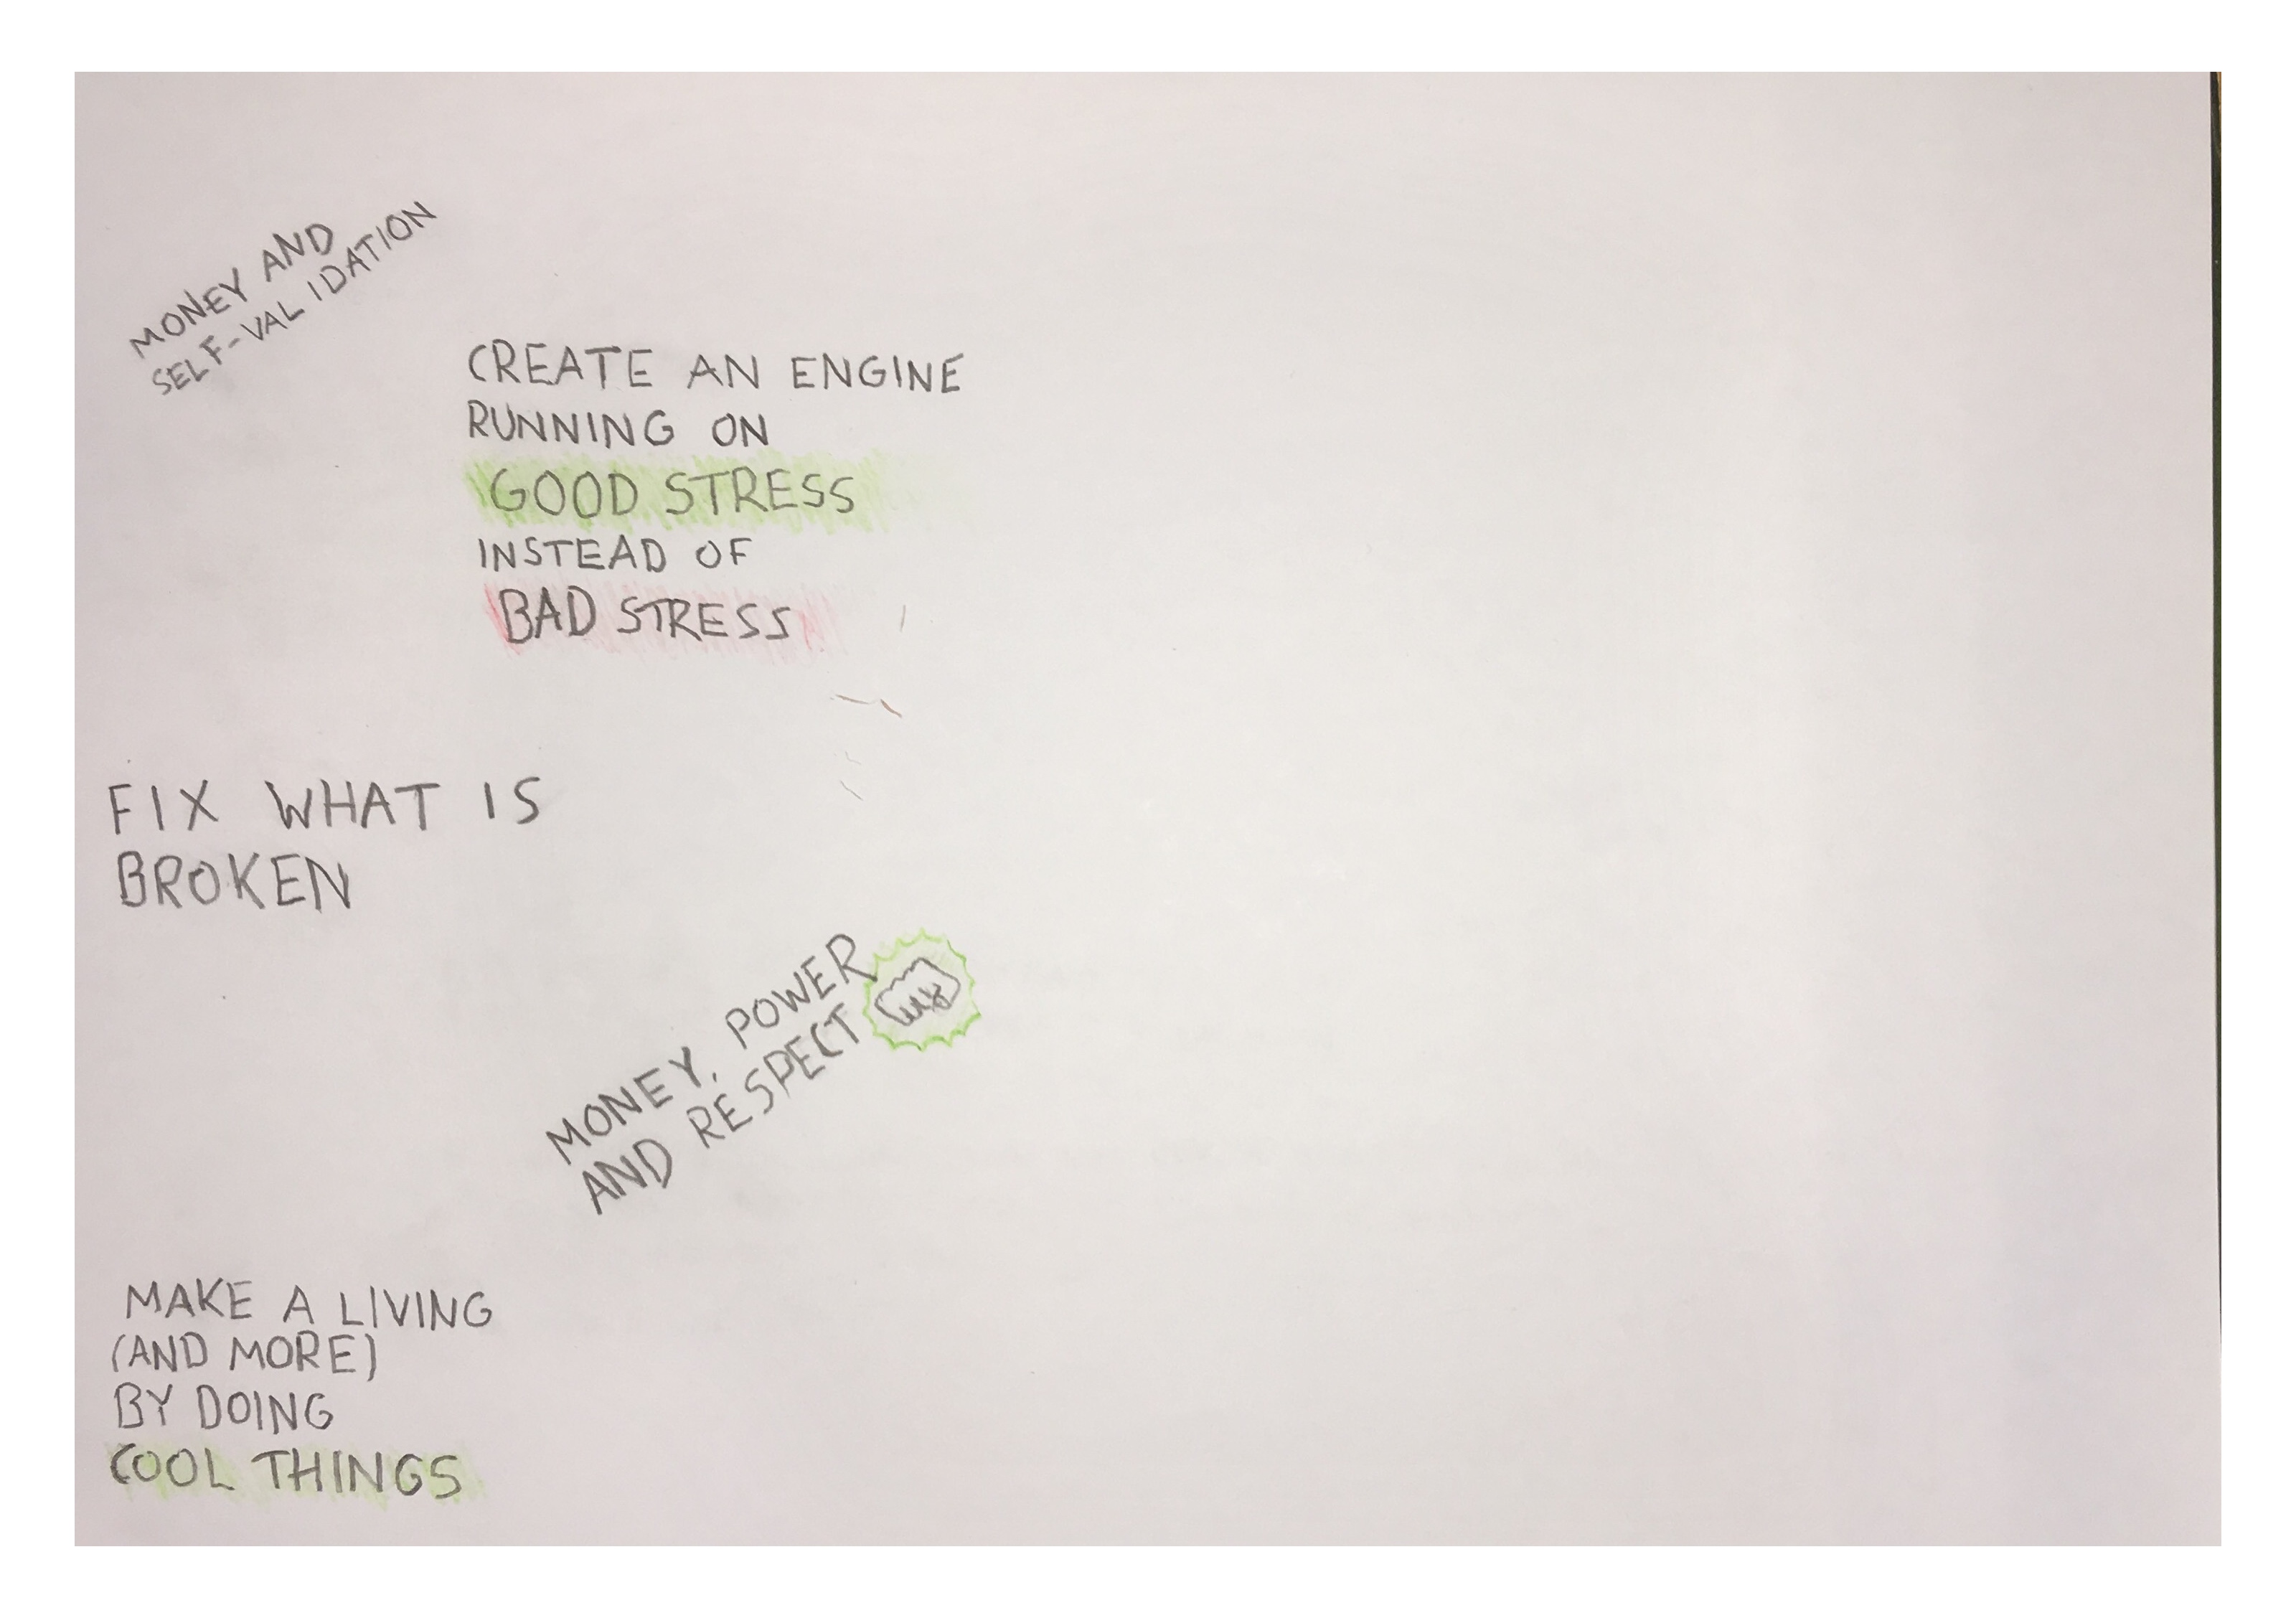 MONEY AND
SELF-VALIDATION
CREATE AN ENGINE
RUNNING ON
GOOD STRESS
INSTEAD OF
BAD STRESS
FIX WHAT IS
BROKEN
MONEY, POWER
AND RESPECT
MAKE A LIVING
(AND MORE)
BY DOING
COOL THINGS